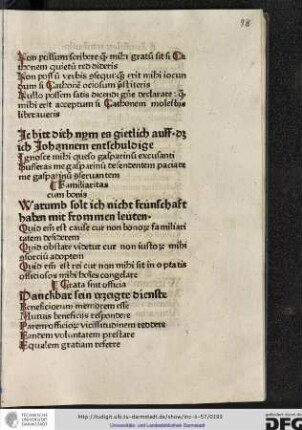 98
Non possum scribere q̃ mihi gratũ sit si Ca
thonem quietũ reddideris
Non possũ verbis q̃sequi q̃ erit mihi iocun
dum si Cathonẽ ociosum p̃stiteris
Nullo possem satis dicendi gñe declarate: q̃
mihi erit acceptum si Cathonem molestijs
liberaveris
Ich bitt dich nym es gietlich auff. dz
ich Johannem entschuldige
Ignosce mihi queso gasparinũ excusanti
Sufferas me gasparinũ defendentem paciare
me gasparinũ
¶ Familiaritas
cum bonis
Warumb solt ich nicht freüntschafft
haben mit frommen leüten.
Quid em̃ est cause cur non bonoꝝ familiari
tatem desiderem
Quid obstare videtur cur non iustoꝝ mihi
glorciũ adoptem
Quid em̃ est rei cur non mihi sit in optatis
officiosis mihi
¶ Grata sint officia
Danckbar sein erzeigte dienste
Beneficiorum memorem esse
Mutuis beneficiis respondere
Parem officioꝝ vicissitudinem reddere
Eandem voluntatem prestare
Equalem gratiam referre
TECHNISCHE
UNIVERSITÄT
DARMSTADT
http://tudigit.ulb.tu-darmstadt.de/show/inc-ii-57/0193
Universitäts- und Landesbibliothek Darmstadt
gefördert durch
DFG